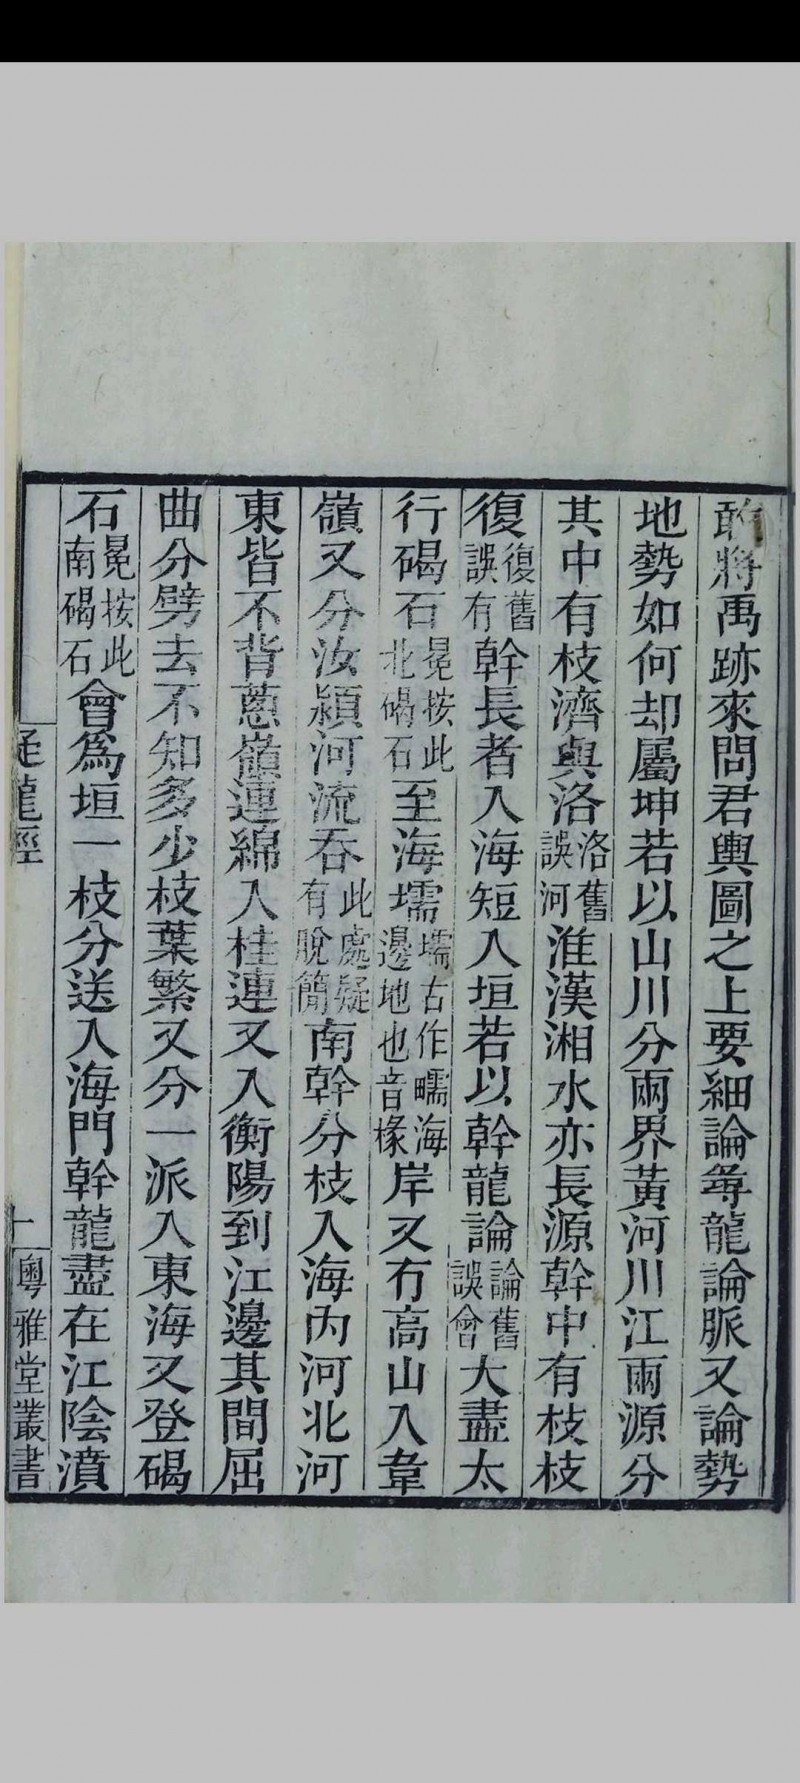 敢將禹跡來問君輿圖之上要細論尋龍論脈又論勢
地勢如何却屬坤若以山川分兩界黃河川江兩源分
其中有枝濟與洛洛舊誤河淮漢湘水亦長源幹中有枝枝
復復舊誤有幹長者入海短入垣若以幹龍論論舊誤會大盡太
行碣石冕按此北碣石至海壖壖古作㬉海邊地也音椽岸又有高山入韋
嶺又分汝潁河流吞此處疑有脫簡南幹分枝入海內河北河
東皆不背蔥嶺連綿入桂連又入衡陽到江邊其間屈
曲分劈去不知多少枝葉繁又分一派入東海又登碣
石冕按此南碣石會爲垣一枝分送入海門幹龍盡在江陰濆
龍經
粵雅堂叢書